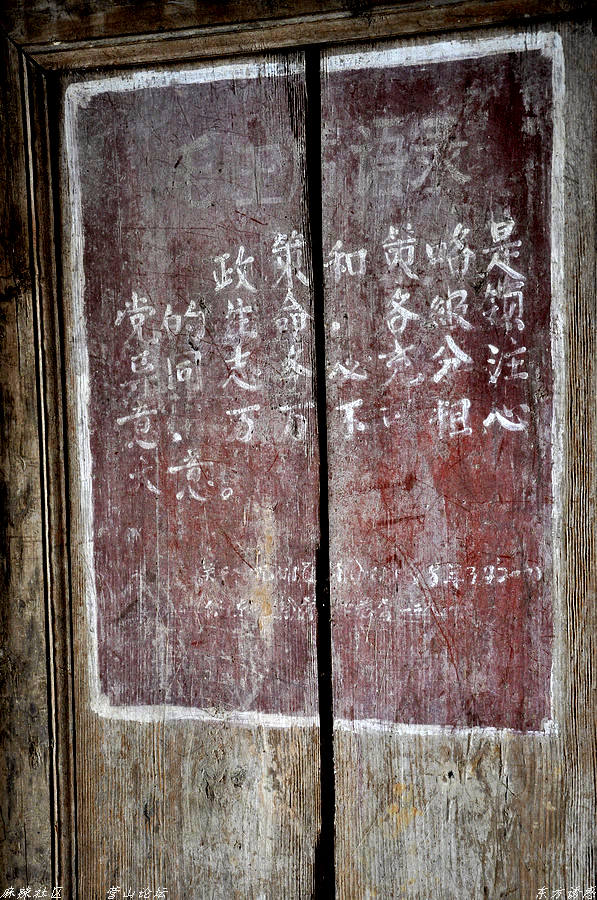 毛主席语录
政策和策略是
党的生命，各级领
导同志务必充分注
意，万万不可粗心
大意。
麻辣社区 营山论坛 东方诱惑